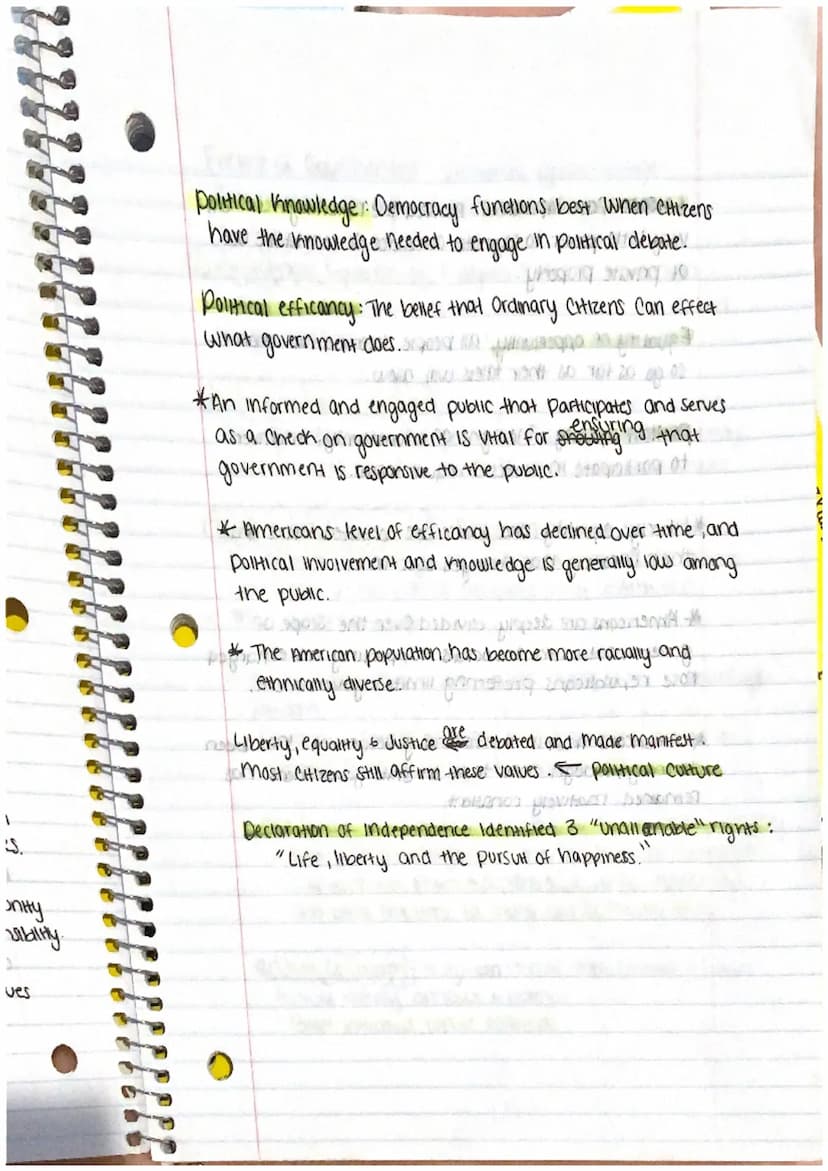 Political Knowledge: Democracy functions best when citizens
have the knowledge needed to engage in political debate.
Political efficancy: The belief that Ordinary citizens can effect
what government does.
*An informed and engaged public that participates and serves
as a check on government is vital for ensuring that
government is responsive to the public.
* Americans level of efficancy has declined over time, and
political involvement and knowledge is generally low among
the public.
* The American population has become more racially and
ethnically diverse.
Liberty, equality & Justice are debated and made manifest.
Most citizens still affirm these values. ← political culture
Declaration of Independence Identified 3 "unalienable" rights:
"Life, liberty and the pursuit of happiness."
ues